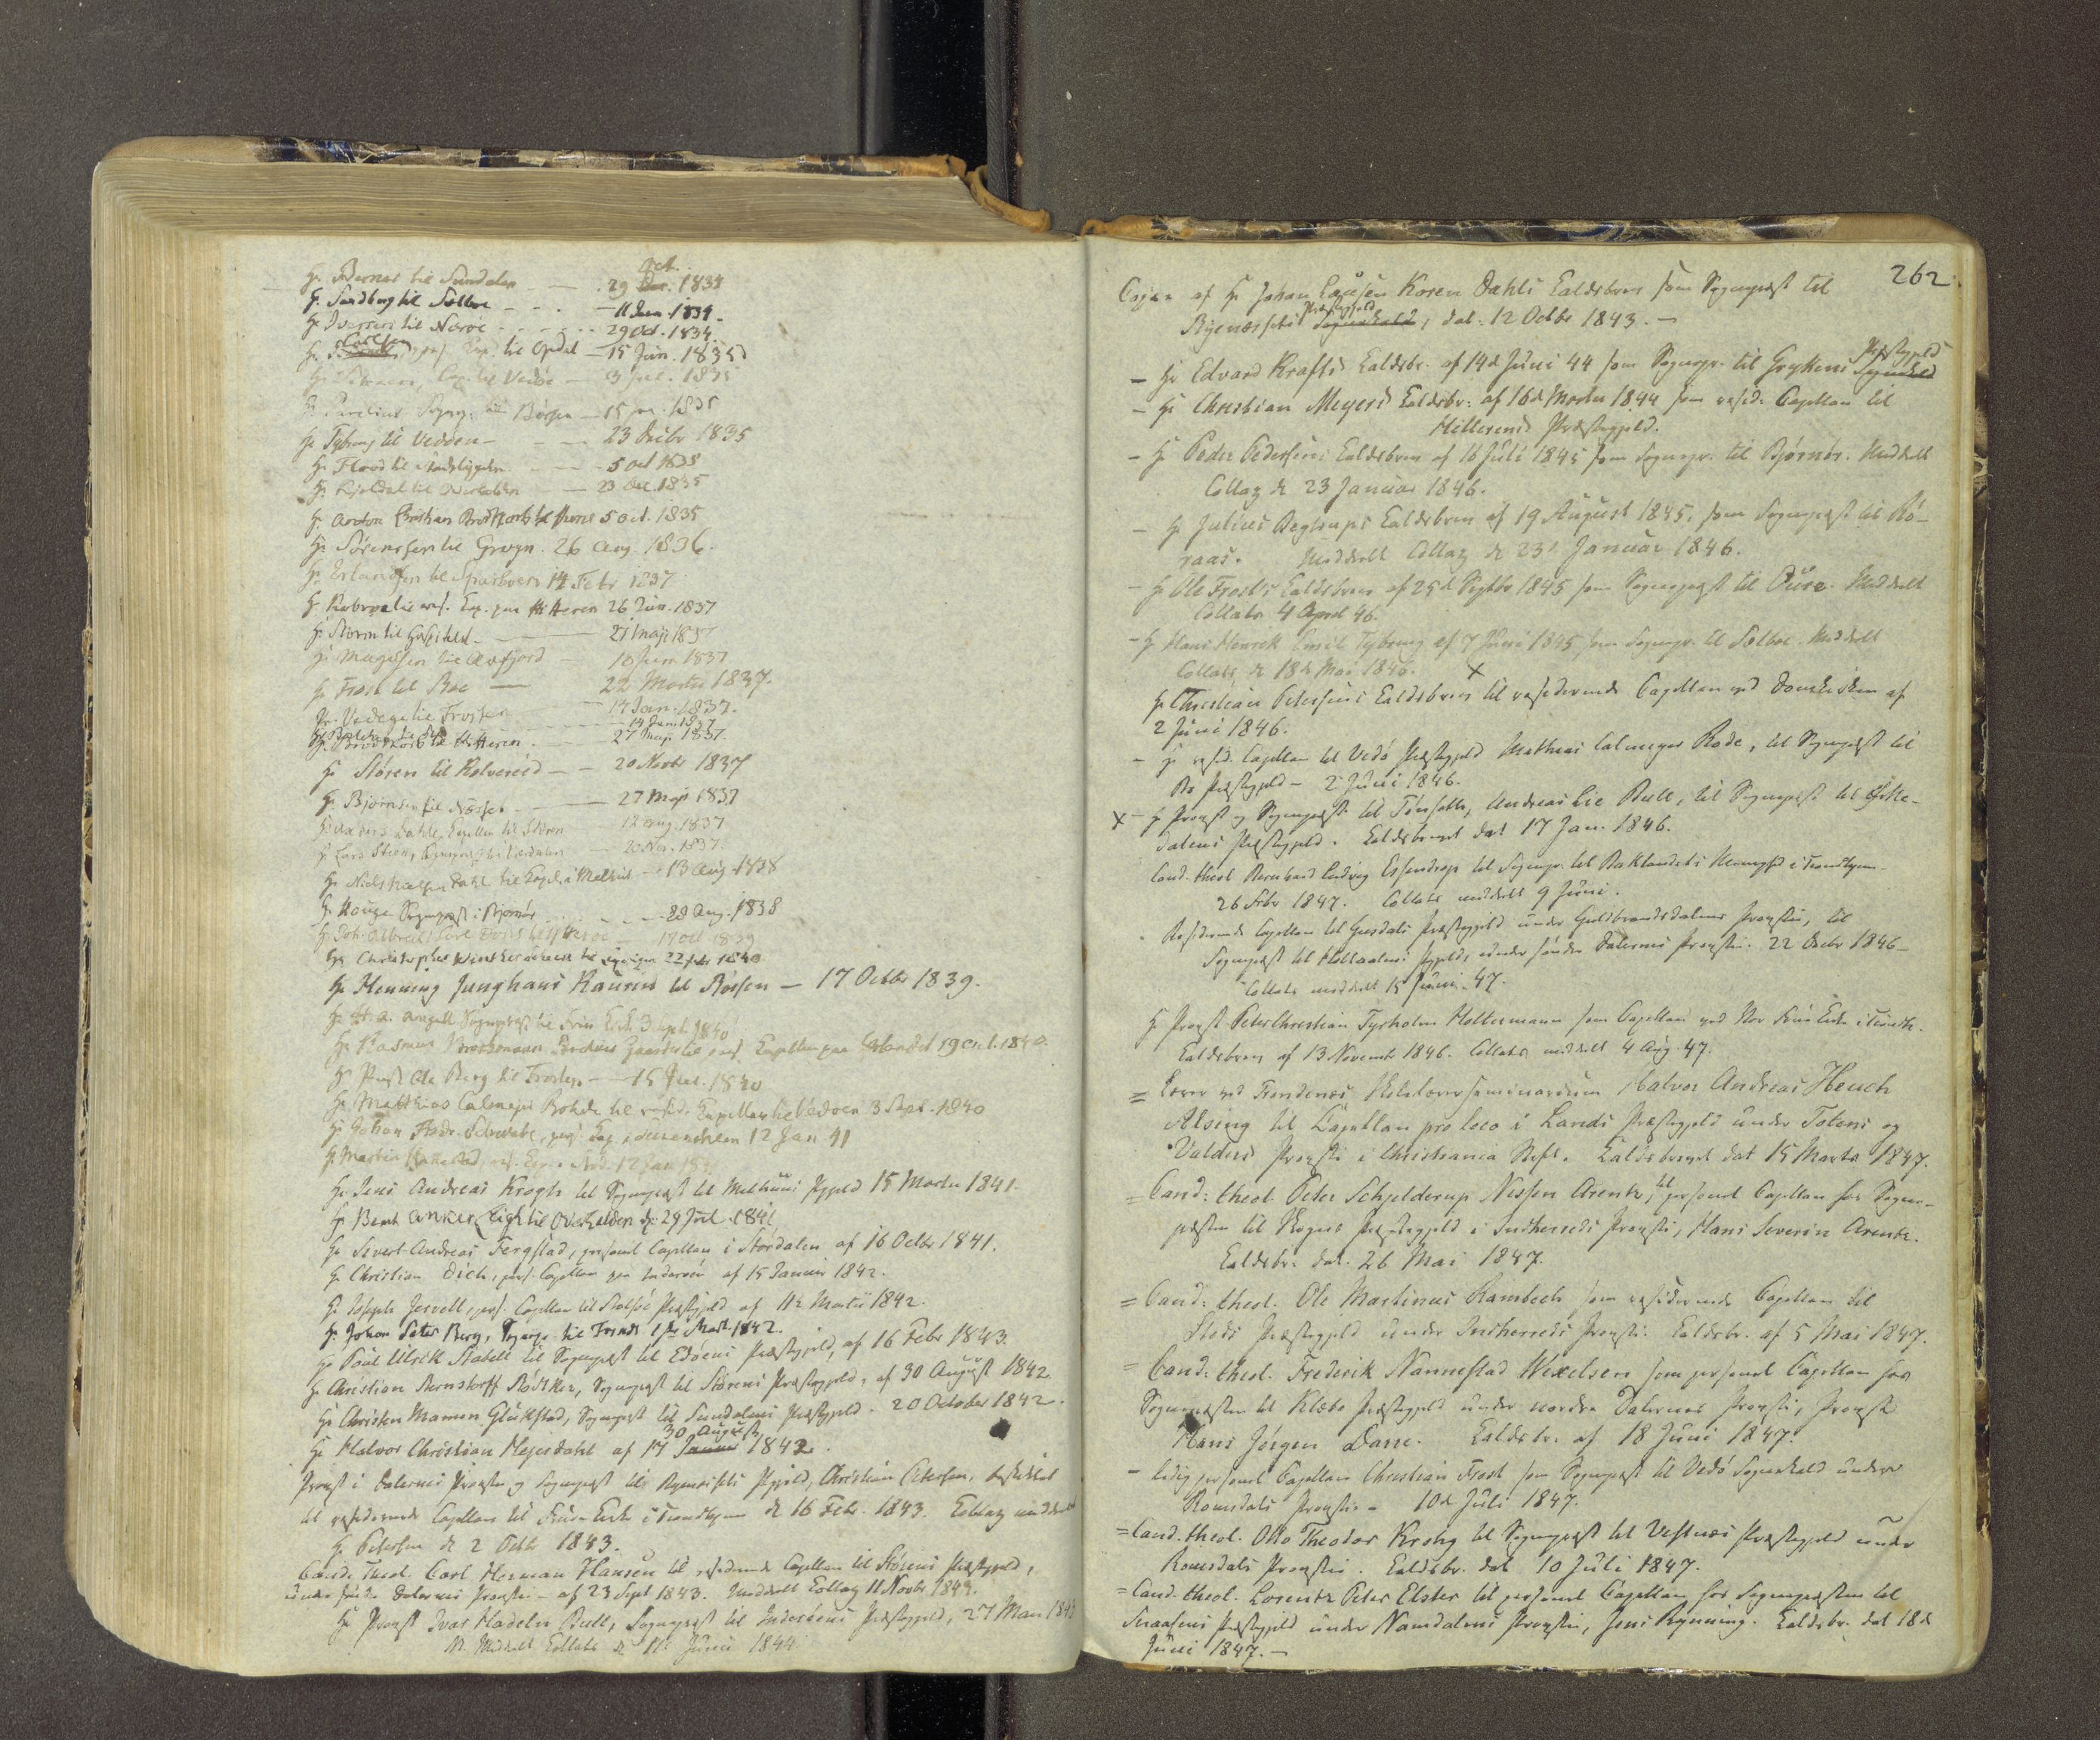 Hr. Berner til Sundalen - - . 29 Oct. 1834
Hr. Sandberg til Selboe - - . - 11 Jun. 1834.
Hr. Iversen til Næroe - - - - 29 Oct. 1834.
Hr. Carlsen pers. Cap. til Opdal - 15 Jun. 1835
Cap. til Vedøe - 3 Jul. 1835
Sogn. til Børsen - 15 1835
Hr. Tybring til Vedøen - - - 23 Decbr 1835
Hr. Flood til Stadsbygden - - 5 Oct 1835
Hr. til Overhalden - 23 Dec. 1835
Hr. Anton Christian til 5 Oct. 1835
Hr. Sørenssen til Grugn. 26 Aug. 1836.
Hr. Erlandsen til Sparboen 14 Febr 1837
Hr. res. Cap. paa Hitteren 26 Jun. 1837
Hr. Storm til Hospitalet - 27 Maji 1837
Hr. Magelsen til Aafjord - 10 Jun. 1837
Hr. Frost til Boe - 22 Martii 1837.
Pr. til Frosten - 14 Jan. 1837.
14 Jan. 1837
Hr. til Hitteren. - 27 Maji 1837.
Hr. Stören til Kolvereid - - 20 Novbr 1837
Hr. Bjørnsen til Nesset - 27 Maji 1837
Hr. Dahle, Capellan til Stören 12 Aug. 1837
Hr. Lars Sognepræst til Værdalen - 20 Nov. 1837.
Hr. Niels Dahl til Capel. i Melhuus - 13 Aug. 1838
Hr. Hauge Sognepræst i Bjørnør - 28 Aug. 1838
Hr. Joh. Albrecht til Hitteroe 17 Oct 1839
Hr. Christopher til 22 Febr 1840
Hr. Henning Junghans Kaurin til Börsen - 17 Octbr 1839.
Hr. H. A. Angell Sognepræst til Frue Kirke 3 Sept. 1840
Hr. Rasmus pers. Capellan paa Ørlandet 19 Oct. 1840.
Hr. Ole Berg til Frosten - 15 1840
Hr. Matthias Calmeyer Rohde til resid. Capellan til Vedöen 3 Sept. 1840
Hr. Johan Fredr. Schwabe, pers. Cap. i Surendalen 12 Jan 41
Hr. Martin 12 Jan 1841
Hr. Jens Andreas Krogh til Sognepræst til Melhuus Pgjeld 15 Martii 1841.
Hr. Bent Anker Eigh til Overhalden d. 29 Jul. 1841
Hr. Sivert Andreas Fergstad, personel Capellan i Stordalen af 16 Octbr 1841.
Hr. Christian Dick, pers. Capellan paa Inderöen af 15 Januar 1842.
Hr. Joseph Jervell, pers. Capellan til Stolsöe Præstegjeld af 11te Martii 1842.
Hr. Johan Peter Berg, Sognepr. til Trinds 1ste Mart. 1842.
Hr. Poul Ulrik Stabell til Sognepræst til Edöens Præstegjeld, af 16 Febr 1843.
Hr. Christian Bernstorff Rödsker, Sognepræst til Störens Præstegjeld, af 30 August 1842.
Hr. Christen Mamen Glückstad, Sognepræst til Sundalens Præstegjeld. 20 October 1842.
30 August
Hr. Halvor Christian Hejerdahl af 17 Januar 1842.
Provst i Dalernes Provstie og Sognepræst til Byenessets Pgjeld, Christian Petersen, beskikket
til residerende Capellan til Frue Kirke i Trondhjem d. 16 Febr. 1843. Collaz meddeelt
Hr. Petersen d. 2 Octbr 1843.
Cand. Theol. Carl Herman Hansen til residerende Capellan til Störens Præstegjeld,
under Söndre Dalernes Provstie - af 23 Sept 1843. Meddeelt Collaz 11 Novbr 1843.
Hr. Provst Ivar Hadeln Bull, Sognepræst til Inderöens Præstegjeld, 27 Mai 1843
N. Meddeelt Collats d. 11te Junii 1844.
262
Copie af Hr. Johan Koren Dahls Kaldsbrev som Sognepræst til
Præstegjeld
Byenessets Sognekald, dat. 12 Octbr 1843. -
Præstegjeld
- Hr. Edvard Krafts Kaldsbr. af 14d Juni 44 som Sognepr. til Gryttens Sognekald
- Hr. Christian Meyers Kaldsbr. af 16d Martii 1844 som resid. Capellan til
Hitterens Præstegjeld.
- Hr. Peder Pedersens Kaldsbrev af 16 Juli 1845 som Sognepr. til Bjørnør. Meddeelt
Collaz d. 23 Januar 1846.
- Hr. Julius Degtrups Kaldsbrev af 19 August 1845, som Sognepræst til Rö-
raas. Meddeelt Collaz d. 23d Januar 1846.
- Hr. Ole Frosts Kaldsbrev af 25d Septbr 1845 som Sognepræst til Oure. Meddeelt
Collats 4 April 46.
- Hr. Hans Henrik Emil Tybring af 7 Juni 1845 som Sognepr. til Selboe. Meddeelt
Collats d. 18d Mai 1846. X
Hr. Christian Petersens Kaldsbrev til residerende Capellan ved Domkirken af
2 Juni 1846.
- Hr. resid. Capellan til Vedö Præstegjeld Mathias Calmeyer Rode, til Sognepræst til
Bö Præstegjeld - 2 Juni 1846.
X - Hr. Provst og Sognepræst til Tönsett, Andreas Lie Bull, til Sognepræst til
dalens Præstegjeld. Kaldsbrevet dat 17 Jan. 1846.
Cand. theol. Bernhard Ludvig Essendrop til Sognepr. til Baklandets Menighed i Trondhjem.
26 Febr 1847. Collats meddeelt 9 Juni.
- Residerende Capellan til Gusdals Præstegjeld under Guldbrandsdalens Provstie, til
Sognepræst til Holtaalens Pgjeld, under söndre Dalernes Provstie. 22 Decbr 1846 -
Collats meddeelt 15 Juni 47.
Hr. Provst Peter Christian Tyrholm Holtermann som Capellan ved Vor Frue Kirke i Trondh.
Kaldsbrev af 13 Novembr 1846. Collats meddeelt 4 Aug. 47.
= Lærer ved Trondenæs Skolelærerseminarium Halvor Andreas Heuch
Alsing til Capellan pro loco i Lands Præstegjeld under Totens og
Valders Provsti i Christiania Stift. Kaldsbrevet dat 15 Marts 1847.
= Cand: theol. Peter Schjelderup Nissen Arentz, til personel Capellan for Sogne-
præsten til Skogns Præstegjeld i Indherreds Provsti, Hans Severin Arentz.
Kaldsbr. dat. 26 Mai 1847.
= Cand: theol. Ole Martinus Rambech som residerende Capellan til
Stods Præstegjeld under Indherreds Provsti. Kaldsbr. af 5 Mai 1847.
= Cand: theol. Frederik Nannestad Wexelsen som personel Capellan for
Sognepræsten til Klæbo Præstegjeld under nordre Dalernes Provsti, Provst
Hans Jörgen Darre. Kaldsbr. af 18 Juni 1847.
- ledig personel Capellan Christian Frost som Sognepræst til Vedö Sognekald under
Romsdals Provstie. - 10d Juli 1847.
= Cand. theol. Otto Theodor Krohg til Sognepræst til Vestnæs Præstegjeld under
Romsdals Provstie. Kaldsbr. dat 10 Juli 1847.
= Cand. theol. Lorentz Peter Elster til personel Capellan for Sognepræsten til
Snaasens Præstegjeld under Namdalens Provstie, Jens Rynning. Kaldsbr. dat 18d
Juni 1847. -